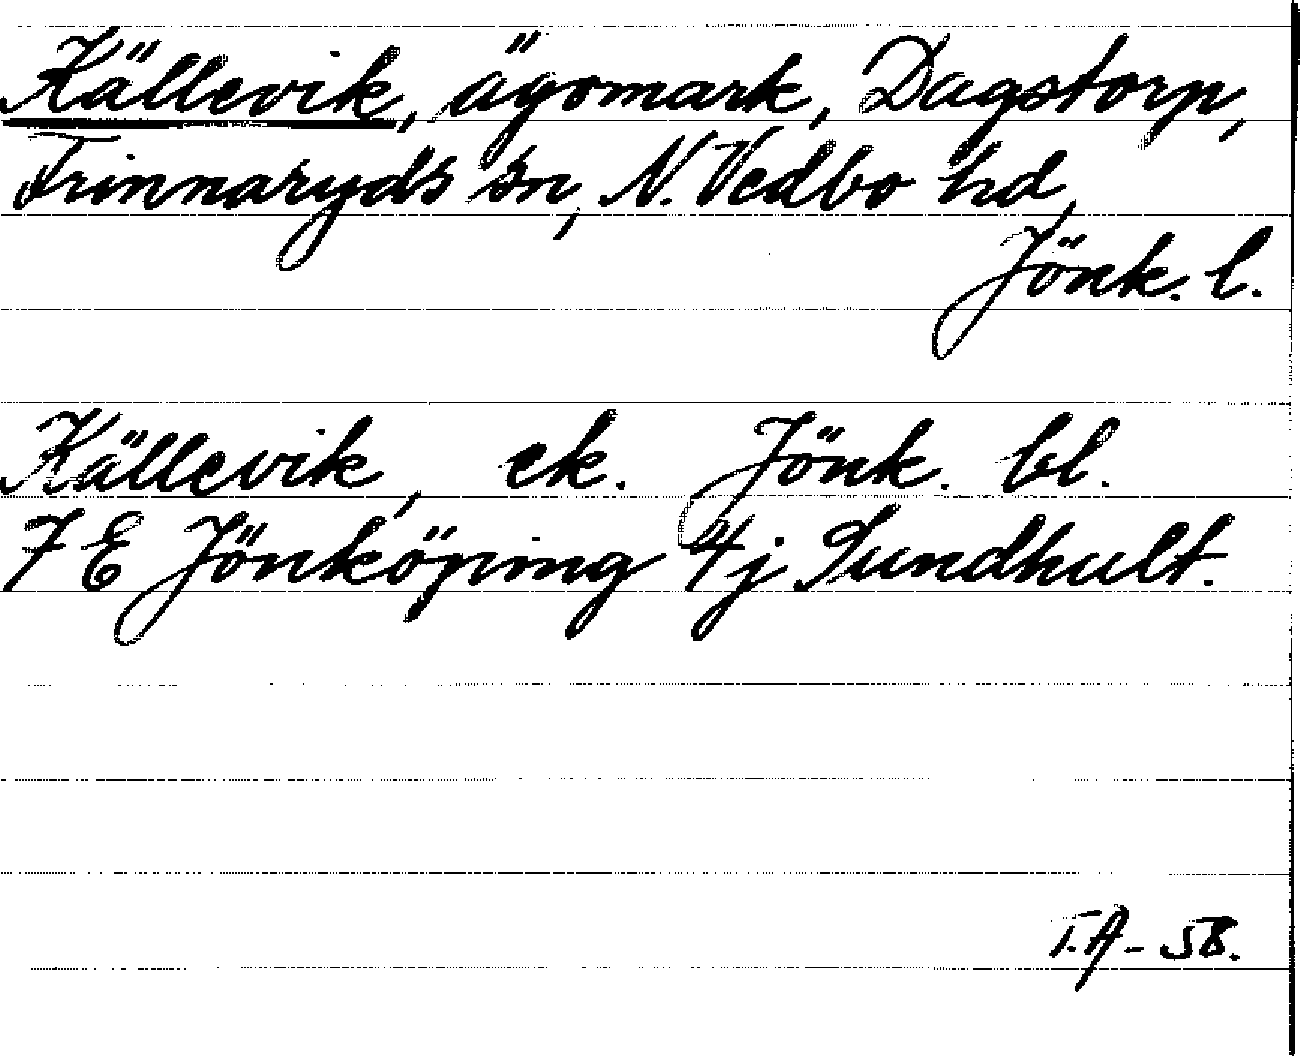 Källevik, ägomark, Dagstorp,
Frinnaryds sn, N. Vedbo hd,
Jönk. l.
Källevik, ek. Jönk. bl.
7 E Jönköping 4j Sundhult.
T.A - 58.